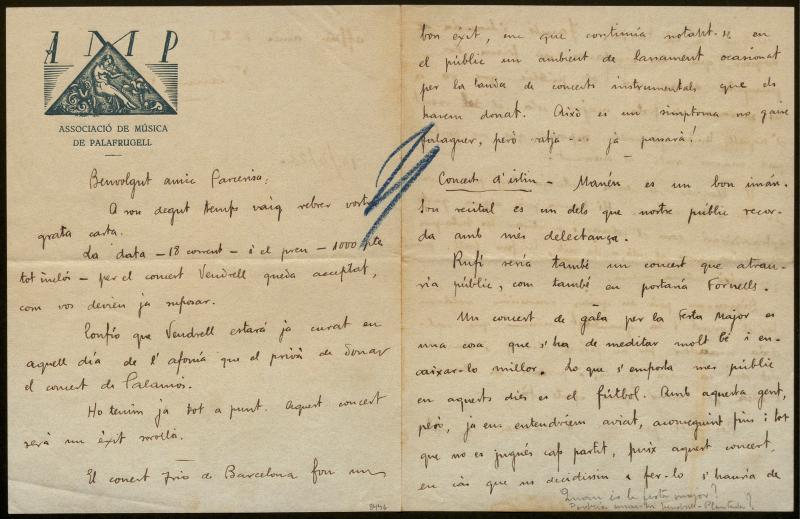 AMP
ASSOCIACIÓ DE MÚSICA
DE PALAFRUGELL
Benvolgut amic Farreras:
A sou degut temps vaig rebrer vostra
grata carta.
La data - 18 corrent - i el preu - 1000 pta
tot inclós - per el concert Vendrell queda acceptat,
com vos devieu ja suposar.
Confio que Vendrell estará ja curat en
aquell día de l'afonía que el privà de donar
el concert de Palamós.
Ho tenim ja tot a punt. Aquest concert
será un èxit sorollós.
El concert Trio de Barcelona fou un
bon éxit, en que continúa notant-se en
el públic un ambient de lassament ocasionat
per la tanda de concerts instrumentals que els
havem donat. Això es un simptoma no gaire
falaguer, però ratja - ja passarà!
Concert d'istiu - Manén es un bon imán.
Son recital es un dels que nostre públic recor-
da amb més delectança.
Rufí sería també un concert que atrau-
ría públic, com també en portaría Fornells.
Un concert de gala per la Festa Major es
una cosa que s'ha de meditar molt bé i en-
caixar-lo millor. Lo que s'emporta mes públic
en aquests dies es el fútbol. Amb aquesta gent,
però, ja ens entendríem aviat, aconseguint fins i tot
que no es jugués cap partit, puix aquest concert,
en cas que us decidissiu a fer-lo s'hauría de
Quan és la festa major?
Vendrell - Plantada?
8446